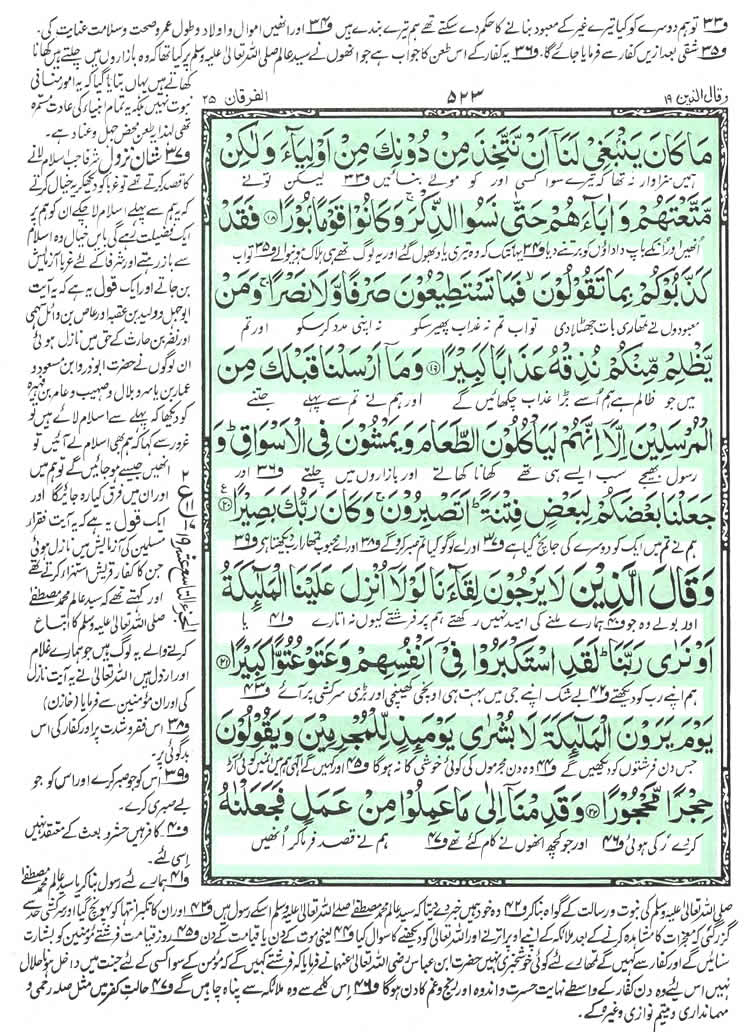 و۳۳ تو ہم دوسرے کو کیا تیرے غیر کے معبود بنانے کا حکم دے سکتے تھے ہم تیرے بندے ہیں و۳۴ اور انھیں اموال و اولاد و طول عمر و صحت و سلامت عنایت کی۔
و۳۵ شقی بعد ازیں کفار سے فرمایا جائے گا۔ و۳۶ یہ کفار کے اس طعن کا جواب ہے جو انھوں نے سید عالم صلی اللہ تعالیٰ علیہ وسلم پر کیا تھا کہ وہ بازاروں میں چلتے ہیں کھانا
کھاتے ہیں یہاں بتایا گیا کہ یہ امور منافی
نبوت نہیں بلکہ یہ تمام انبیاء کی عادت مستمرہ
تھی لہذا یہ طعن محض جہل و عناد ہے۔
و۳۷ شان نزول شرفا جب اسلام لانے
کا قصد کرتے تھے تو غربا کو دیکھ کر یہ خیال کرتے
کہ یہ ہم سے پہلے اسلام لا چکے ان کو ہم پر
ایک فضیلت رہے گی بایں خیال وہ اسلام
سے باز رہتے اور شرفا کے لئے غربا آزمایش
بن جاتے اور ایک قول یہ ہے کہ یہ آیت
ابوجہل و ولید بن عقبہ اور عاص بن وائل سہمی
اور نضر بن حارث کے حق میں نازل ہوئی
ان لوگوں نے حضرت ابوذر و ابن مسعود و
عمار بن یاسر و بلال و صہیب و عامر بن فہیرہ
کو دیکھا کہ پہلے سے اسلام لائے ہیں تو
غرور سے کہا کہ ہم بھی اسلام لے آئیں تو
انھیں جیسے ہو جائیں گے تو ہم میں
اور ان میں فرق کیا رہ جائیگا اور
ایک قول یہ ہے کہ یہ آیت فقراء
مسلمین کی آزمایش میں نازل ہوئی
جن کا کفار قریش استہزاء کرتے تھے
اور کہتے تھے کہ سید عالم محمد مصطفےٰ
صلی اللہ تعالیٰ علیہ وسلم کا اتباع
کرنے والے یہ لوگ ہیں جو ہمارے غلام
اور ارذل ہیں اللہ تعالیٰ نے یہ آیت نازل
کی اور ان مؤمنین سے فرمایا (خازن)
و۳۸ اس فقر و شدت پر اور کفار کی اس
بدگوئی پر۔
و۳۹ اس کو جو صبر کرے اور اس کو جو
بے صبری کرے۔
و۴۰ کافر ہیں حشر و بعث کے معتقد نہیں
اسی لئے۔
و۴۱ ہمارے لئے رسول بنا کر یا سید عالم محمد مصطفےٰ
وقال الذین ۱۹
۵۲۳
الفرقان ۲۵
مَا كَانَ يَنۢبَغِي لَنَآ اَنْ نَّتَّخِذَ مِنْ دُوْنِكَ مِنْ اَوْلِيَآءَ وَلٰكِنْ
ہمیں سزاوار نہ تھا کہ تیرے سوا کسی اور کو مولےٰ بنائیں و۳۳ لیکن تو نے
مَّتَّعْتَهُمْ وَاٰبَآءَهُمْ حَتّٰى نَسُوا الذِّكْرَ ۚ وَكَانُوْا قَوْمًا بُوْرًا ﴿۱۸﴾ فَقَدْ
انھیں اور ان کے باپ داداؤں کو برتنے دیا و۳۴ یہاں تک کہ وہ تیری یاد بھول گئے اور یہ لوگ تھے ہی ہلاک ہونے والے و۳۵ تو اب
كَذَّبُوْكُمْ بِمَا تَقُوْلُوْنَ ۙ فَمَا تَسْتَطِيْعُوْنَ صَرْفًا وَّلَا نَصْرًا ۚ وَمَنْ
معبودوں نے تمھاری بات جھٹلا دی تو اب تم نہ عذاب پھیر سکو نہ اپنی مدد کر سکو اور تم
يَّظْلِمْ مِّنْكُمْ نُذِقْهُ عَذَابًا كَبِيْرًا ﴿۱۹﴾ وَمَآ اَرْسَلْنَا قَبْلَكَ مِنَ
میں جو ظالم ہے ہم اُسے بڑا عذاب چکھائیں گے اور ہم نے تم سے پہلے جتنے
الْمُرْسَلِيْنَ اِلَّآ اِنَّهُمْ لَيَاْكُلُوْنَ الطَّعَامَ وَيَمْشُوْنَ فِى الْاَسْوَاقِ ؕ وَ
رسول بھیجے سب ایسے ہی تھے کھانا کھاتے اور بازاروں میں چلتے و۳۶ اور
جَعَلْنَا بَعْضَكُمْ لِبَعْضٍ فِتْنَةً ؕ اَتَصْبِرُوْنَ ۚ وَكَانَ رَبُّكَ بَصِيْرًا ﴿۲۰﴾
ہم نے تم میں ایک کو دوسرے کی جانچ کیا ہے و۳۷ اور اے لوگو کیا تم صبر کرو گے و۳۸ اور اے محبوب تمھارا رب دیکھتا ہے و۳۹
وَقَالَ الَّذِيْنَ لَا يَرْجُوْنَ لِقَآءَنَا لَوْلَآ اُنْزِلَ عَلَيْنَا الْمَلٰٓئِكَةُ
اور بولے وہ جو و۴۰ ہمارے ملنے کی امید نہیں رکھتے ہم پر فرشتے کیوں نہ اتارے و۴۱ یا
اَوْ نَرٰى رَبَّنَا ؕ لَقَدِ اسْتَكْبَرُوْا فِىْٓ اَنْفُسِهِمْ وَعَتَوْ عُتُوًّا كَبِيْرًا ﴿۲۱﴾
ہم اپنے رب کو دیکھتے و۴۲ بے شک اپنے جی میں بہت ہی اونچی کھینچی اور بڑی سرکشی پر آئے و۴۳
يَوْمَ يَرَوْنَ الْمَلٰٓئِكَةَ لَا بُشْرٰى يَوْمَئِذٍ لِّلْمُجْرِمِيْنَ وَيَقُوْلُوْنَ
جس دن فرشتوں کو دیکھیں گے و۴۴ وہ دن مجرموں کی کوئی خوشی کا نہ ہوگا و۴۵ اور کہیں گے الٰہی ہم میں ان میں کوئی آڑ
حِجْرًا مَّحْجُوْرًا ﴿۲۲﴾ وَقَدِمْنَآ اِلٰى مَا عَمِلُوْا مِنْ عَمَلٍ فَجَعَلْنٰهُ
کردے رُکی ہوئی و۴۶ اور جو کچھ انھوں نے کام کئے تھے و۴۷ ہم نے قصد فرما کر انھیں
صلی اللہ تعالیٰ علیہ وسلم کی نبوت و رسالت کے گواہ بنا کر و۴۲ وہ خود ہمیں خبر دے دیتا کہ سید عالم محمد مصطفےٰ صلے اللہ تعالیٰ علیہ وسلم اسکے رسول ہیں و۴۳ اور ان کا تکبر انتہا کو پہونچ گیا اور سرکشی حد سے
گزر گئی کہ معجزات کا مشاہدہ کرنے کے بعد ملائکہ کے اپنے اوپر اترنے اور اللہ تعالیٰ کو دیکھنے کا سوال کیا و۴۴ یعنی موت کے دن یا قیامت کے دن و۴۵ روز قیامت فرشتے مؤمنین کو بشارت
سنائیں گے اور کفار سے کہیں گے تمھارے لئے کوئی خوشخبری نہیں حضرت ابن عباس رضی اللہ تعالیٰ عنہما نے فرمایا کہ فرشتے کہیں گے کہ مؤمن کے سوا کسی کے لئے جنت میں داخل ہونا حلال
نہیں اس لئے وہ دن کفار کے واسطے نہایت حسرت و اندوہ اور رنج و غم کا دن ہوگا و۴۶ اس کلمے سے وہ ملائکہ سے پناہ چاہیں گے و۴۷ حالت کفر میں مثل صلہ رحمی و
مہمانداری و یتیم نوازی وغیرہ کے۔